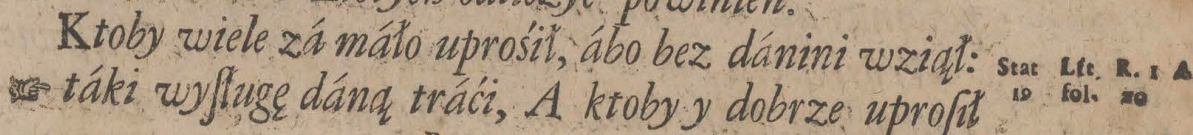 powinien.
Ktoby wiele zá máło uprośił, ábo bez dánini wziął:
táki wyſługę dáną tráći, A ktoby y dobrze uproſił
Stat Lſt. R. 1 A
19 fol. 20